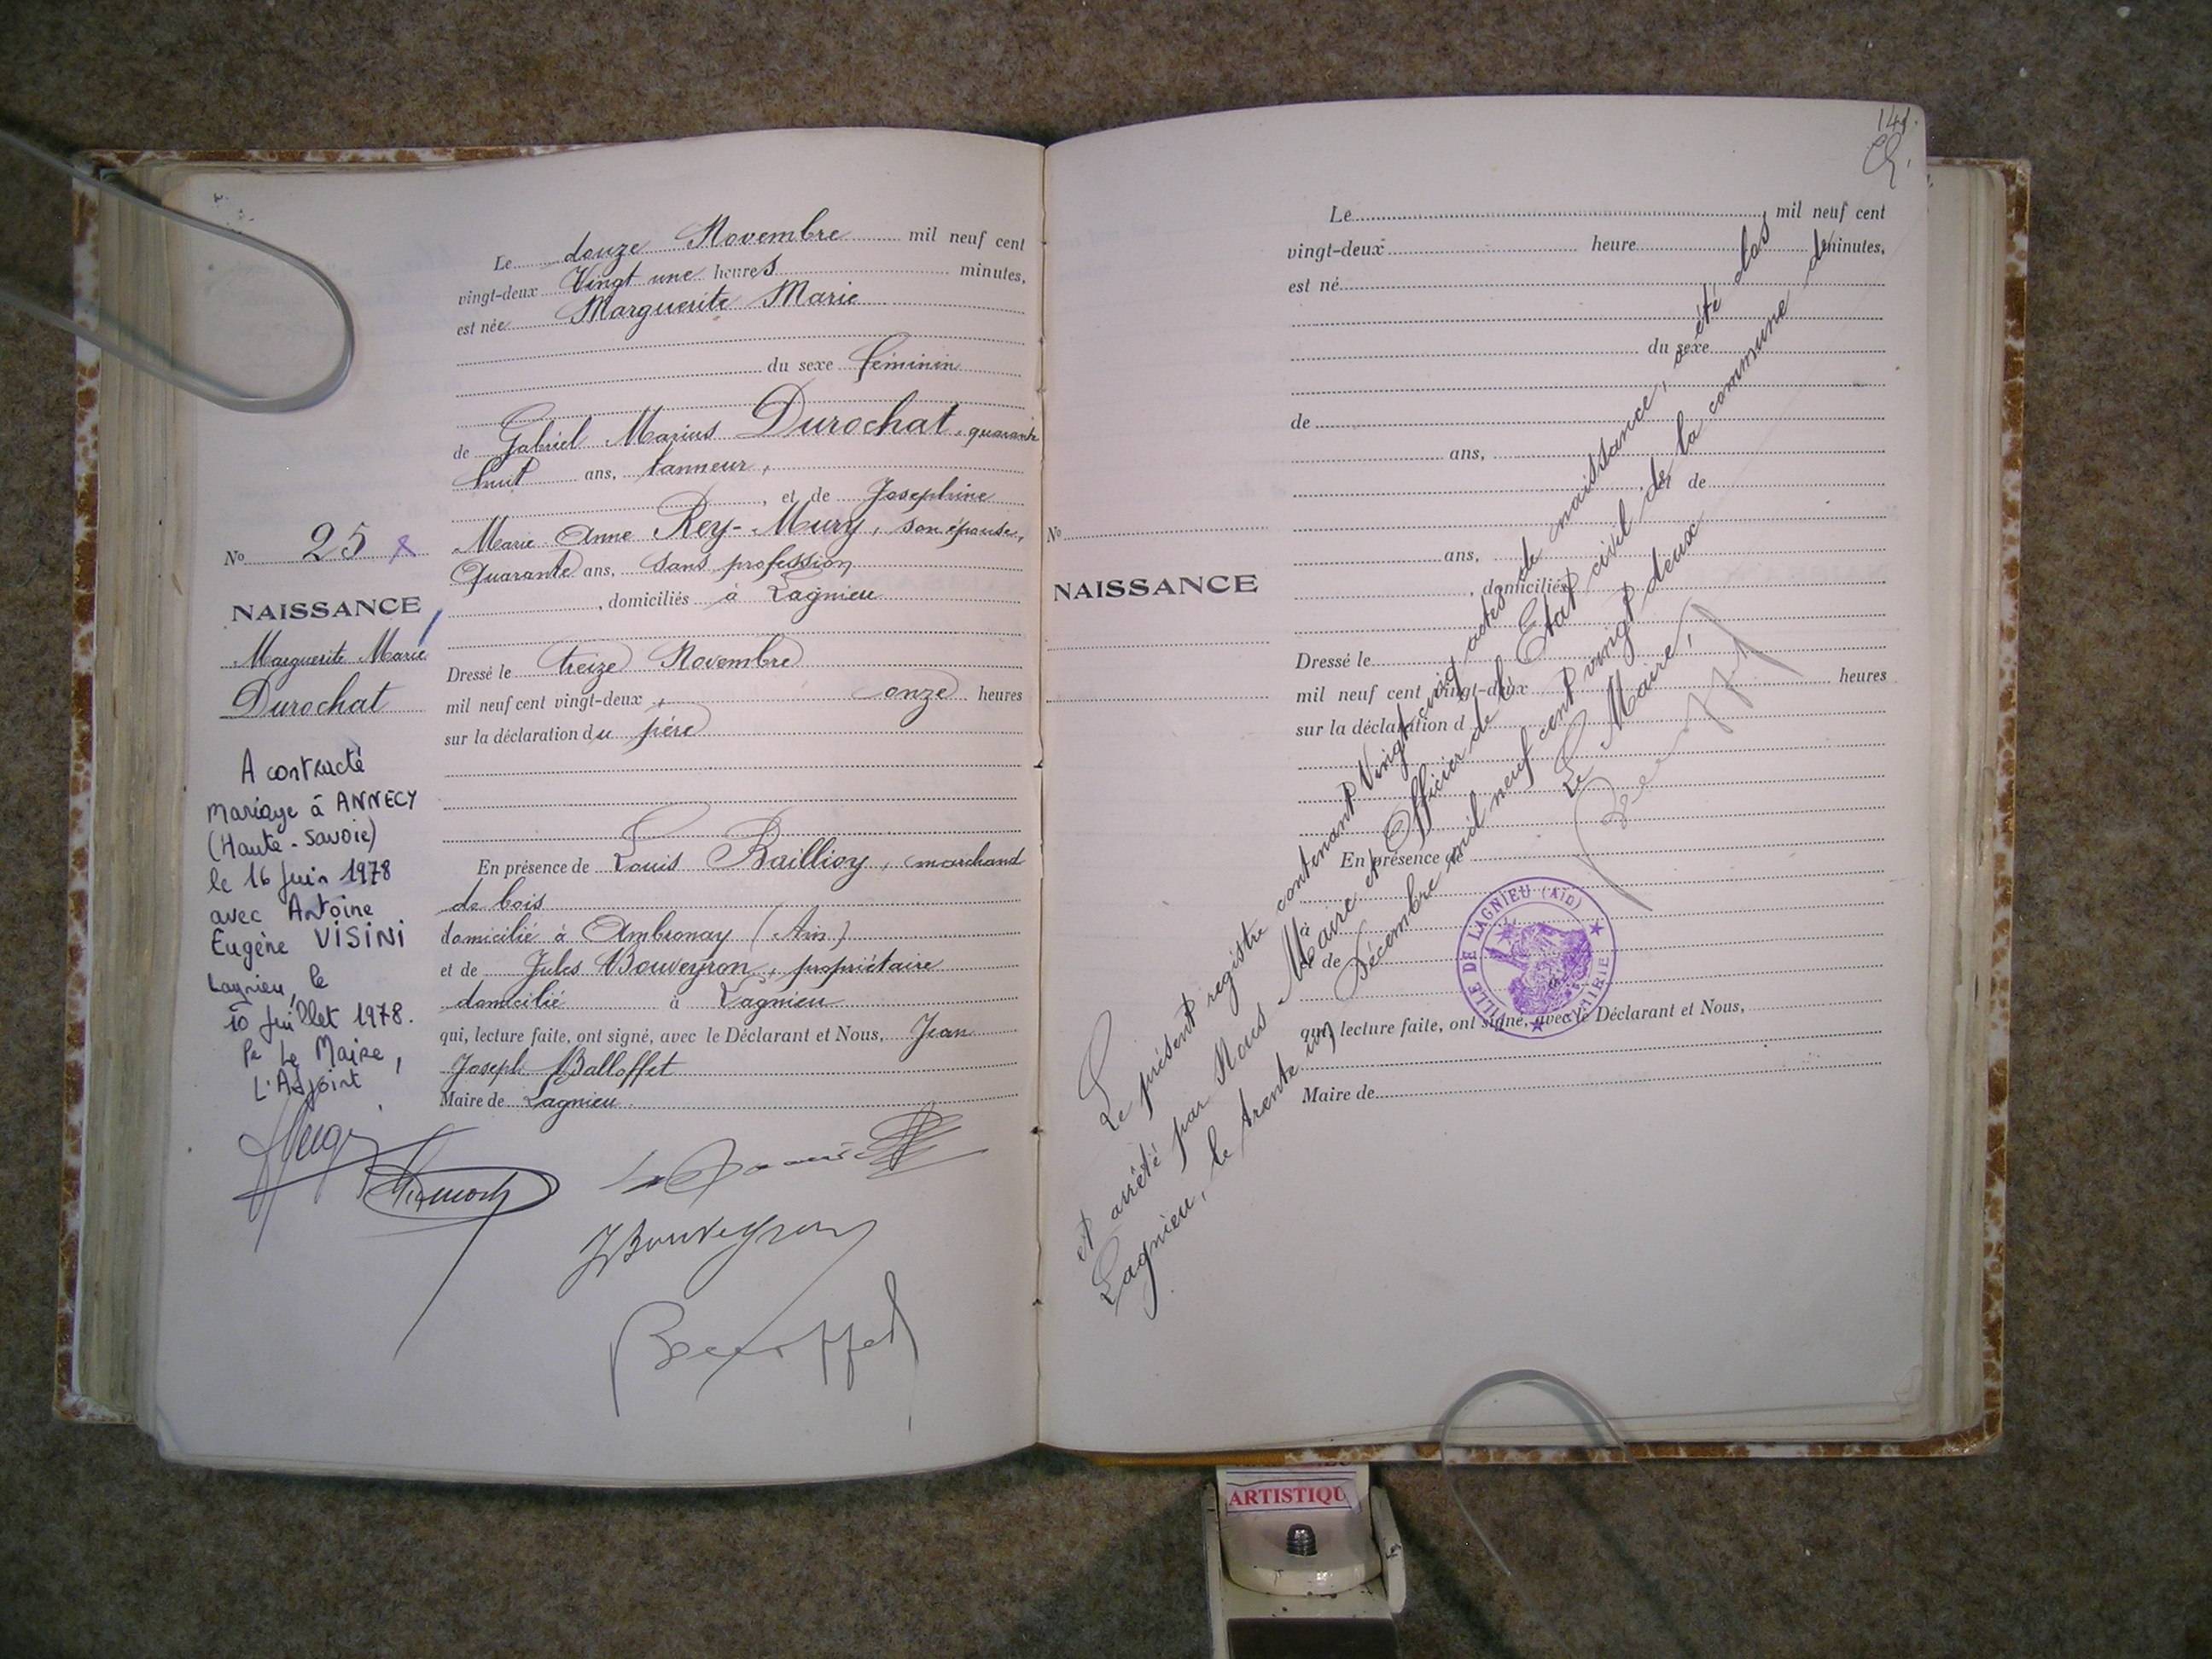 Le douze Novembre mil neuf cent
vingt-deux Vingt une heures minutes,
est née Marguerite Marie
du sexe féminin
de Gabriel Marius Durochat, quarante
huit ans, tanneur,
, et de Josephine
Marie Anne Rey-Mury, son épouse,
Quarante ans, sans profession
, domiciliés à Lagnieu
Dressé le treize Novembre
mil neuf cent vingt-deux, onze heures
sur la déclaration du père
En présence de Louis Baillioy, marchand
de bois
domicilié à Ambronay (Ain)
et de Jules Bouveyron, propriétaire
domicilié à Lagnieu
qui, lecture faite, ont signé, avec le Déclarant et Nous, Jean
Joseph Balloffet
Maire de Lagnieu.
JBouveyron
Balloffet
No 25
NAISSANCE
Marguerite Marie
Durochat
A contracté
mariage à ANNECY
(Haute-Savoie)
le 16 Juin 1978
avec Antoine
Eugène VISINI
Lagnieu, le
10 Juillet 1978.
Pr Le Maire,
L'Adjoint
141.
Le mil neuf cent
vingt-deux heure minutes,
est né
du sexe
de
ans,
, et de
ans,
, domiciliés
Dressé le
mil neuf cent vingt-deux heures
sur la déclaration d
En présence de
à
et de
qui, lecture faite, ont signé, avec le Déclarant et Nous,
Maire de
No
NAISSANCE
Le présent registre contenant Vingt cinq actes de naissance, a été clos
et arrêté par Nous Maire et Officier de l'Etat civil de la commune de
Lagnieu, le trente un Décembre mil neuf cent vingt deux
Le Maire,
VILLE DE LAGNIEU (AIN)
MAIRIE
ARTISTIQU